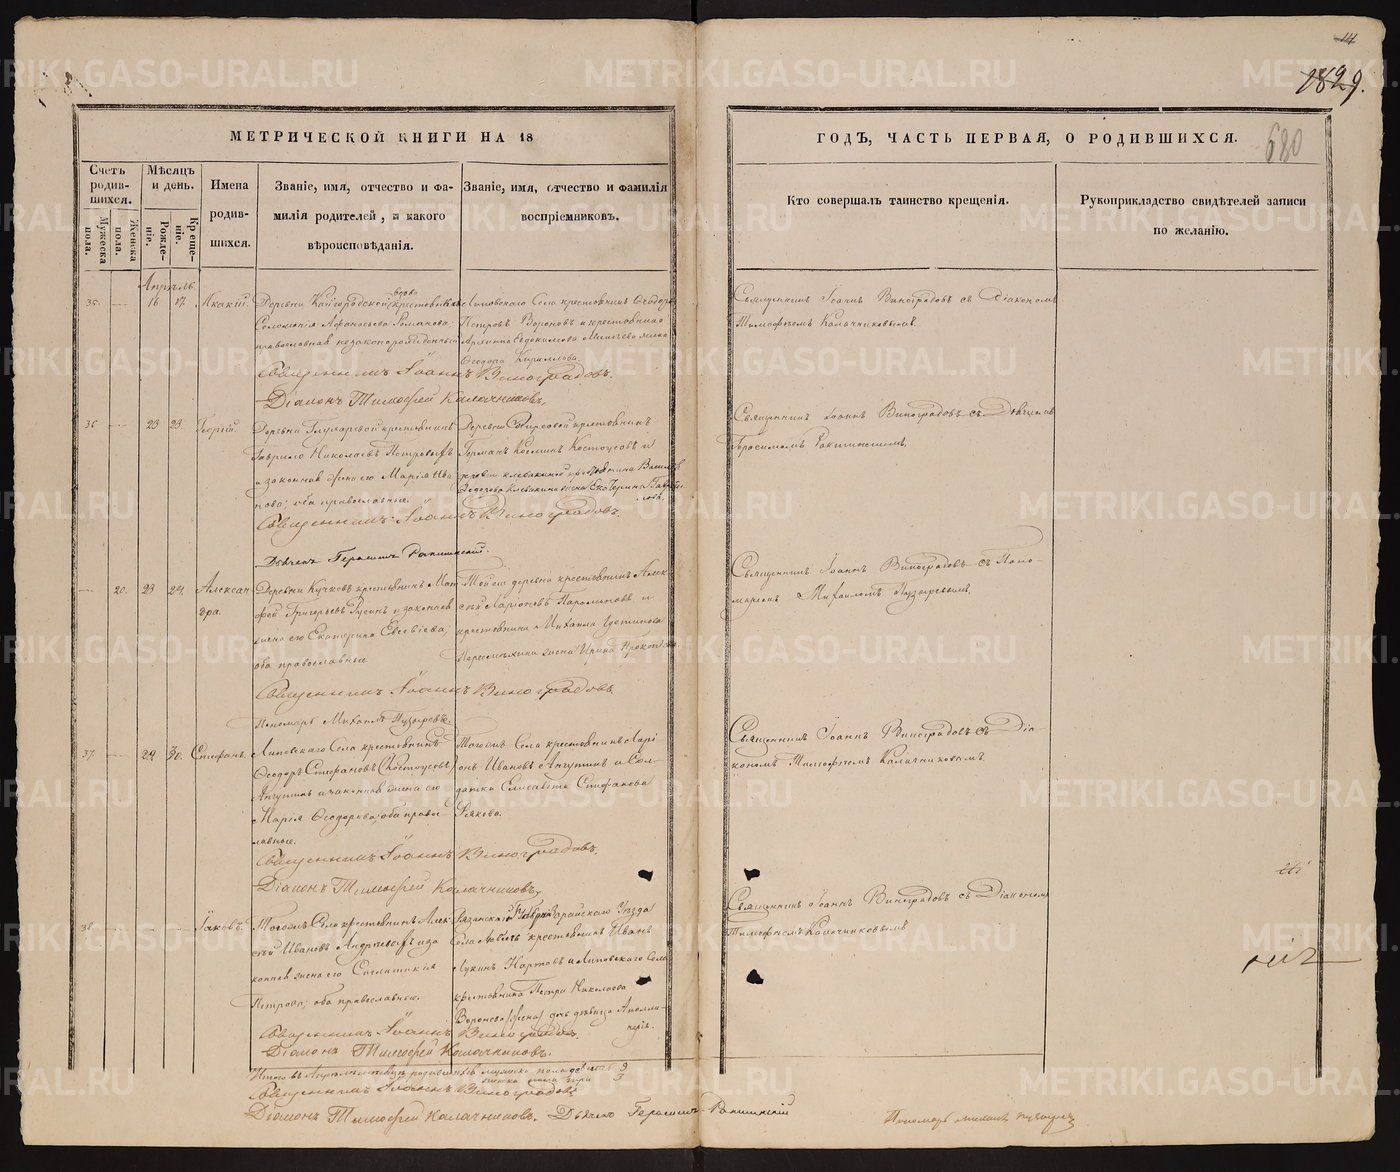 1829.
680
МЕТРИЧЕСКОЙ КНИГИ НА 18
ГОДЪ, ЧАСТЬ ПЕРВАЯ, О РОДИВШИХСЯ.
Счетъ родив-
шихся.
Мужеска
пола.
Женска
пола.
Мѣсяцъ
и день.
Рожде-
ніе.
Креще-
ніе.
Имена
родив-
шихся.
Званіе, имя, отчество и фа-
милія родителей, и какого
вѣроисповѣданія.
Званіе, имя, отчество и фамилія
воспріемниковъ.
Кто совершалъ таинство крещенія.
Рукоприкладство свидѣтелей записи
по желанію.
Апрѣль.
35. 16 17. Акакій.
Деревни крестьянская
Соломонія Афанасьева Романова,
православная незаконорожденный
Липовскаго Села крестьянинъ Ѳеодоръ
Петровъ Вороновъ и крестьянина
Ѳеодора Кириллова.
Священникъ Іоаннъ Виноградовъ съ Діакономъ
Тимофѣемъ Калачниковымъ.
Священникъ Іоаннъ Виноградовъ.
Діаконъ Тимофей Калачниковъ.
36 23 23. Георгій.
Деревни Глухаревой крестьянинъ
Гаврило Николаевъ Петровыхъ
и законная жена его Марія Ива-
нова; оба православные.
Деревни крестьянинъ
Германъ Костоусовъ и
Екатерина Гаври-
лова.
Священникъ Іоаннъ Виноградовъ съ Дьячкомъ
Герасимомъ Ракитинскимъ.
Священникъ Іоаннъ Виноградовъ.
Дьячекъ Герасимъ Ракитинскій.
20. 23 24. Алексан-
дра.
Деревни Кучковъ крестьянинъ Мат-
фей Григорьевъ Русинъ и законная
жена его Екатерина Евсевіева,
оба православные
Той же деревни крестьянинъ Алек-
сѣй Ларіоновъ Парамоновъ и
крестьянина Михаила Устинова
жена Ирина Прокоп
Священникъ Іоаннъ Виноградовъ съ Поно-
маремъ Михаиломъ Пузыревымъ.
Священникъ Іоаннъ Виноградовъ.
Пономарь Михаилъ Пузыревъ.
37. 29 30. Стефанъ.
Липовскаго Села крестьянинъ
Ѳеодоръ Стефановъ (Костоусовъ)
Ангутинъ и законная жена его
Марія Ѳеодорова; оба право-
славные.
Тогожъ Села крестьянинъ Ларі-
онъ Ивановъ Ангутинъ и Сол-
датка Елисавета Стефанова
Священникъ Іоаннъ Виноградовъ съ Діа-
кономъ Тимофѣемъ Калачниковымъ.
Священникъ Іоаннъ Виноградовъ.
Діаконъ Тимофей Калачниковъ.
38. Іаковъ.
Тогожъ Села крестьянинъ Алек-
сѣй Ивановъ Андреевыхъ и за-
конная жена его
Петрова; оба православные.
Рязанской Губерніи Зарайскаго Уѣзда
крестьянинъ Иванъ
Лукинъ Картовъ и Липовскаго Села
крестьянина Петра Николаева
Воронова дочь дѣвица Аполли-
нарія.
Священникъ Іоаннъ Виноградовъ съ Діакономъ
Тимофѣемъ Калачниковымъ
Священникъ Іоаннъ Виноградовъ.
Діаконъ Тимофей Калачниковъ.
Итого въ Апрѣлѣ родившихся мужска пола девять 9
женска пола три 3
Священникъ Іоаннъ Виноградовъ
Діаконъ Тимофей Калачниковъ. Дьячекъ Герасимъ Ракитинскій
Пономарь Михаилъ Пузыревъ
METRIKI.GASO-URAL.RU